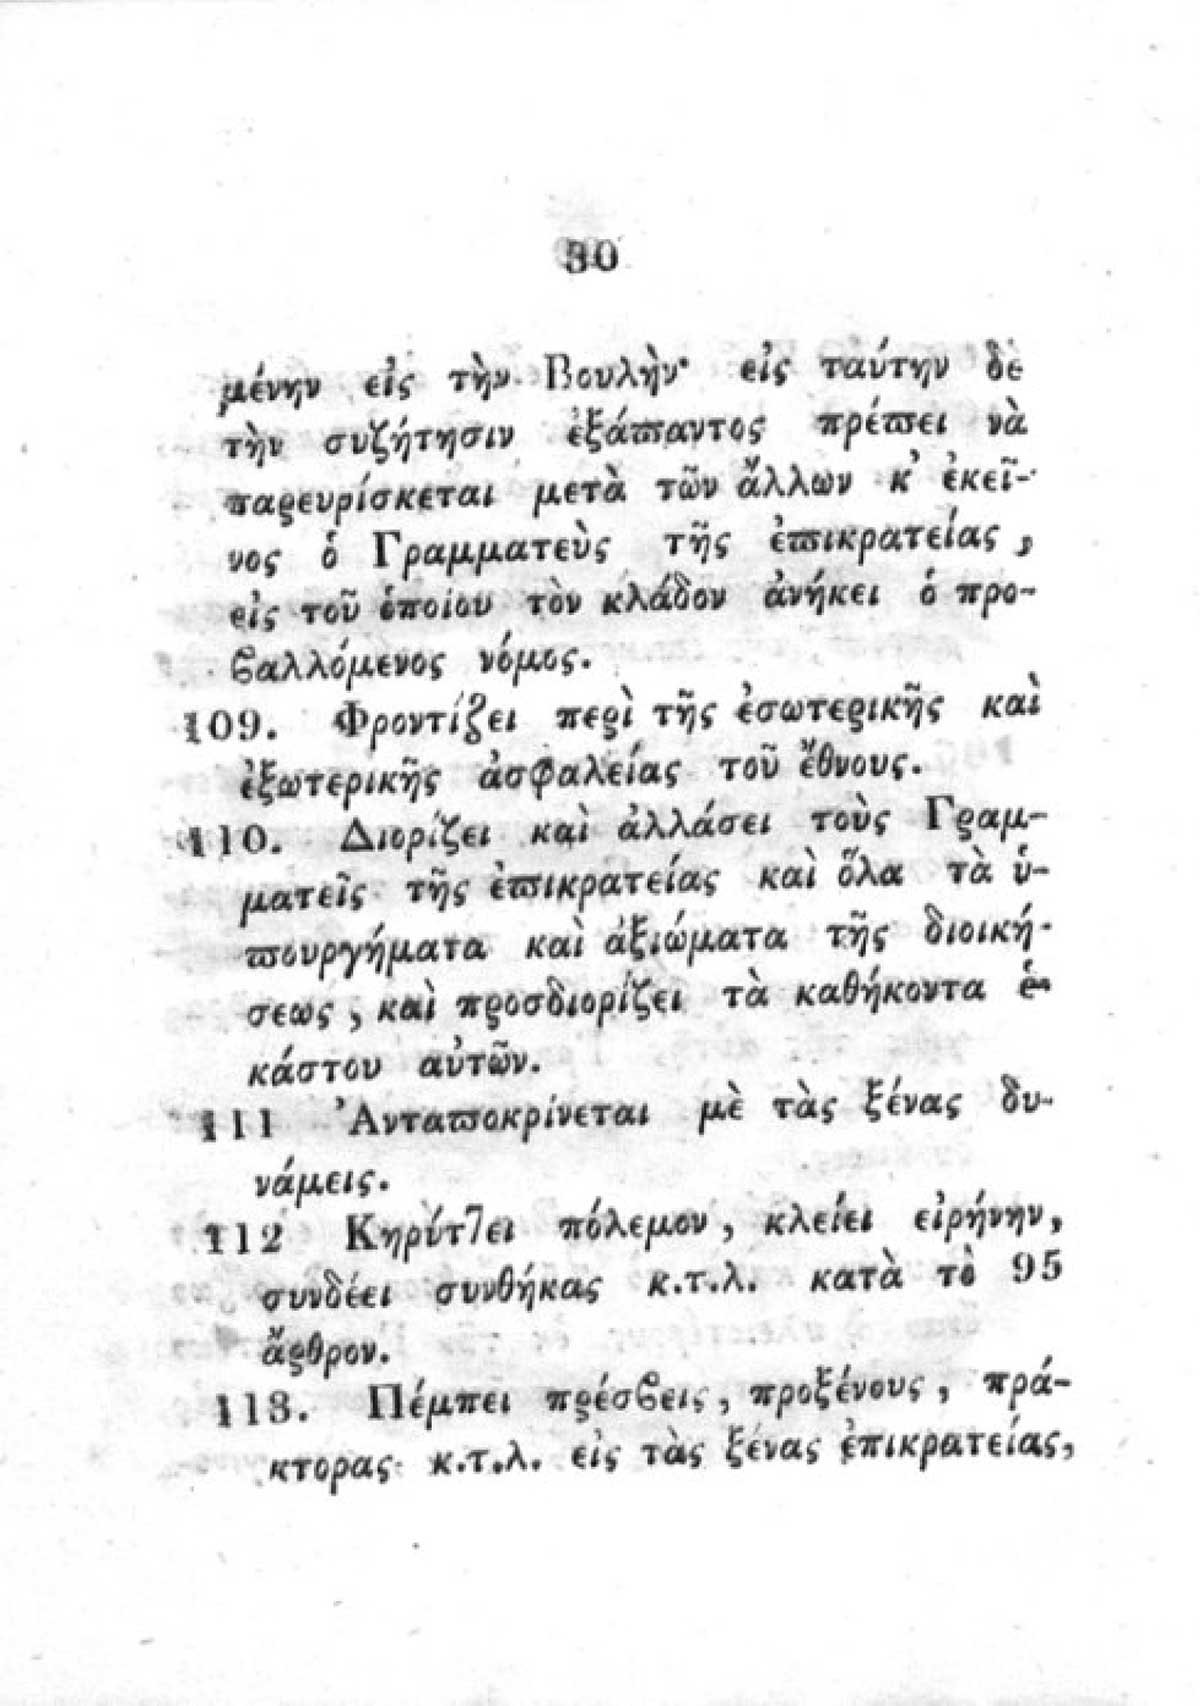 30
μένην εἰς τὴν Βουλὴν· εἰς ταύτην δὲ
τὴν συζήτησιν ἐξάϖαντος πρέϖει νὰ
παρευρίσκεται μετὰ τῶν ἄλλων κ᾿ ἐκεῖ-
νος ὁ Γραμματεὺς τῆς ἐϖικρατείας,
εἰς τοῦ ὁποίου τὸν κλάδον ἀνήκει ὁ προ-
ϐαλλόμενος νόμος.
109. Φροντίζει περὶ τῆς ἐσωτερικῆς καὶ
ἐξωτερικῆς ἀσφαλείας τοῦ ἔθνους.
110. Διορίζει καὶ ἀλλάσει τοὺς Γραμ-
ματεῖς τῆς ἐϖικρατείας καὶ ὅλα τὰ ὑ-
ϖουργήματα καὶ ἀξιώματα τῆς διοική-
σεως, καὶ προσδιορίζει τὰ καθήκοντα ἑ-
κάστου αὐτῶν.
111 Ἀνταϖοκρίνεται μὲ τὰς ξένας δυ-
νάμεις.
112 Κηρύττει πόλεμον, κλείει εἰρήνην,
συνδέει συνθήκας κ.τ.λ. κατὰ τὸ 95
ἄρθρον.
113. Πέμπει πρέσϐεις, προξένους, πρά-
κτορας κ.τ.λ. εἰς τὰς ξένας ἐπικρατείας,